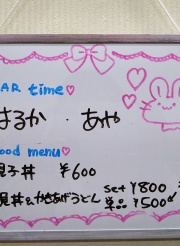 AR time♡
はるか ・ あや
ood menu♡
親子丼 ¥600
set ¥800
見丼&かきあげうどん 単品 ¥500